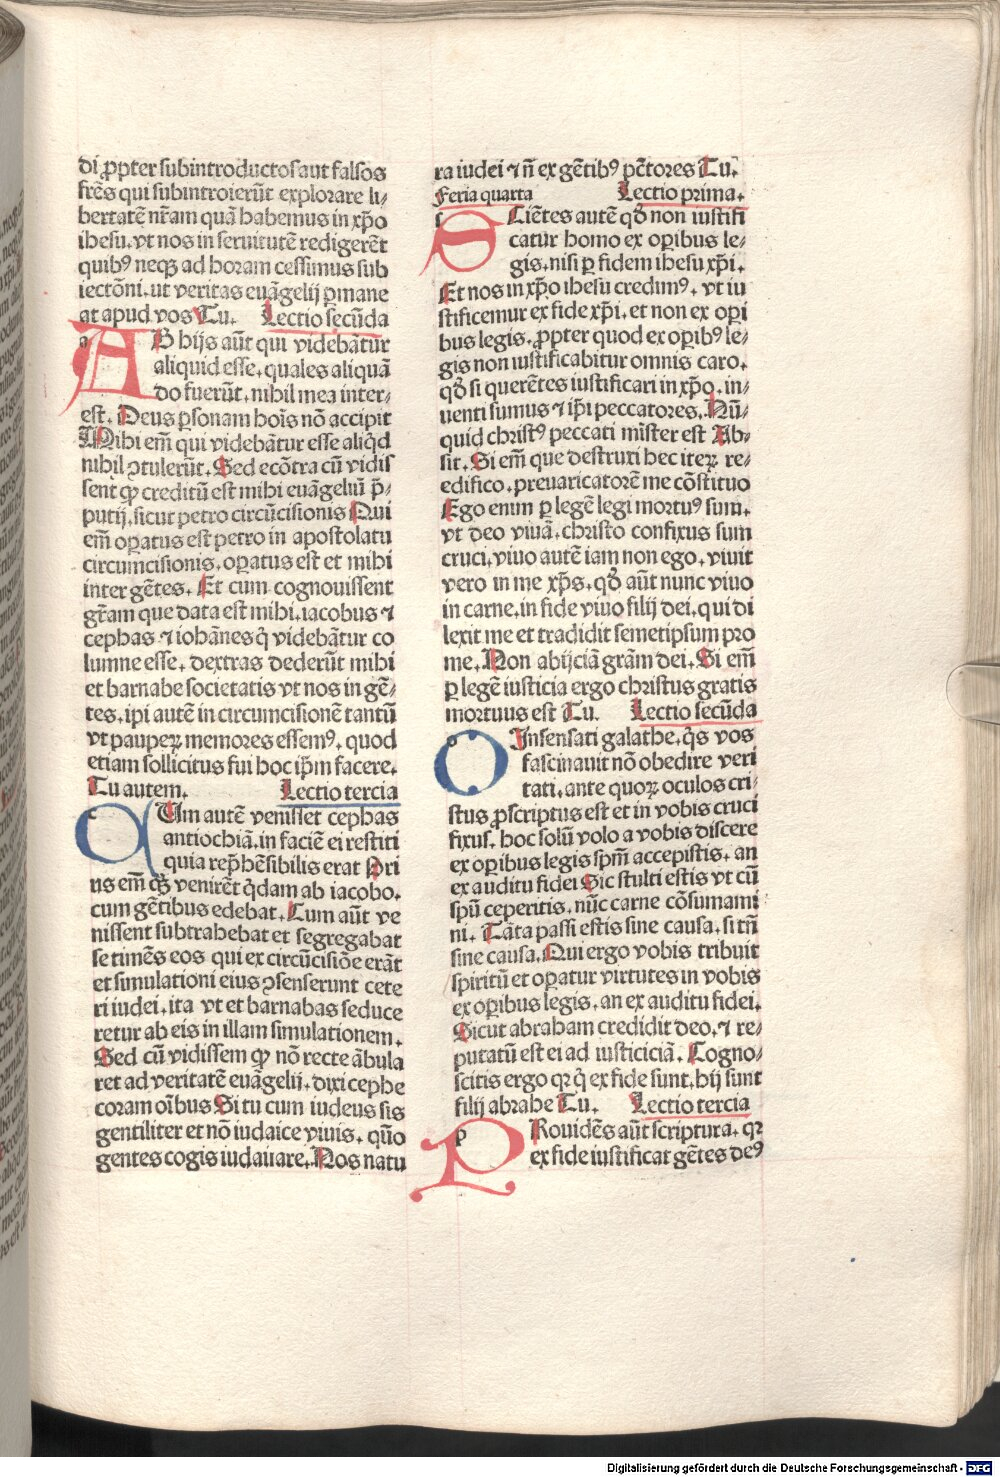 di ꝓpter subintroductos aut falsos
frēs qui subintroierūt explorare li⸗
bertatē nr̄am quā habemus in xp̄o
ihesu. vt nos in seruitutē redigerēt
quibꝰ neqꝫ ad horam cessimus sub
iectōni. ut veritas euāgelij ꝑmane
at apud vos Tu. Lectio secūda
AB hijs aūt qui videbātur
aliquid esse. quales aliquā
do fuerūt. nihil mea inter⸗
est. Deus ꝑsonam hoīs nō accipit
Mihi em̄ qui videbātur esse aliq̇d
nihil ꝯtulerūt. Sed ecōtra cū vidis
sent ꝙ creditū est mihi euāgeliū p̄⸗
putij. sicut petro circūcisionis Qui
em̄ oꝑatus est petro in apostolatu
circumcisionis. oꝑatus est et mihi
inter gētes. Et cum cognouissent
gr̄am que data est mihi. iacobus ⁊
cephas ⁊ iohānes q̇ videbātur co
lumne esse. dextras dederūt mihi
et barnabe societatis vt nos in gē⸗
tes. ipi autē in circumcisionē tantū
vt pauperꝝ memores essemꝰ. quod
etiam sollicitus fui hoc ip̄m facere.
Tu autem. Lectio tercia
CUm autē venisset cephas
antiochiā. in faciē ei restiti
quia rep̄hēsibilis erat Pri
us em̄ ꝙ̄ venirēt q̇dam ab iacobo.
cum gētibus edebat. Cum aūt ve
nissent subtrahebat et segregabat
se timēs eos qui ex circūcisiōe erāt
et simulationi eius ꝯsenserunt cete
ri iudei. ita vt et barnabas seduce
retur ab eis in illam simulationem.
Sed cū vidissem ꝙ nō recte ābula
ret ad veritatē euāgelij. dixi cephe
coram oībus Si tu cum iudeus sis
gentiliter et nō iudaice viuis. quō
gentes cogis iudauare. Nos natu
ra iudei ⁊ n̄ ex gētibꝰ pc̄tores Tu.
Feria quarta Lectio prima.
SCiētes autē qd̄ non iustifi
catur homo ex oꝑibus le⸗
gis. nisi ꝑ fidem ihesu xp̄i.
Et nos in xp̄o ihesu credimꝰ. vt iu
stificemur ex fide xp̄i. et non ex oꝑi
bus legis. ꝓpter quod ex oꝑibꝰ le⸗
gis non iustificabitur omnis caro.
qd̄ si querētes iustificari in xp̄o. in⸗
uenti sumus ⁊ ip̄i peccatores. Nū⸗
quid christꝰ peccati mīster est Ab⸗
sit. Si em̄ que destruxi hec iterꝝ re⸗
edifico. preuaricatorē me cōstituo
Ego enim ꝑ legē legi mortuꝰ sum.
vt deo viuā. christo confixus sum
cruci. viuo autē iam non ego. viuit
vero in me xp̄s. qd̄ aūt nunc viuo
in carne. in fide viuo filij dei. qui di
lexit me et tradidit semetipsum pro
me. Non abijciā grām dei. Si em̄
ꝑ legē iusticia ergo christus gratis
mortuus est Tu. Lectio secūda
O Insensati galathe. q̇s vos
fascinauit nō obedire veri
tati. ante quorꝝ oculos cri⸗
stus ꝓscriptus est et in vobis cruci
fixus. hoc solū volo a vobis discere
ex oꝑibus legis spm̄ accepistis. an
ex auditu fidei Sic stulti estis vt cū
spū ceperitis. nūc carne cōsumami
ni. Tāta passi estis sine causa. si tn̄
sine causa. Qui ergo vobis tribuit
spiritū et oꝑatur virtutes in vobis
ex oꝑibus legis. an ex auditu fidei.
Sicut abraham credidit deo. ⁊ re⸗
putatū est ei ad iusticiciā. Cogno⸗
scitis ergo qꝛ q̇ ex fide sunt. hij sunt
filij abrahe Tu. Lectio tercia
PRouidēs aūt scriptura. qꝛ
ex fide iustificat gētes deꝰ
Digitalisierung gefördert durch die Deutsche Forschungsgemeinschaft - DFG